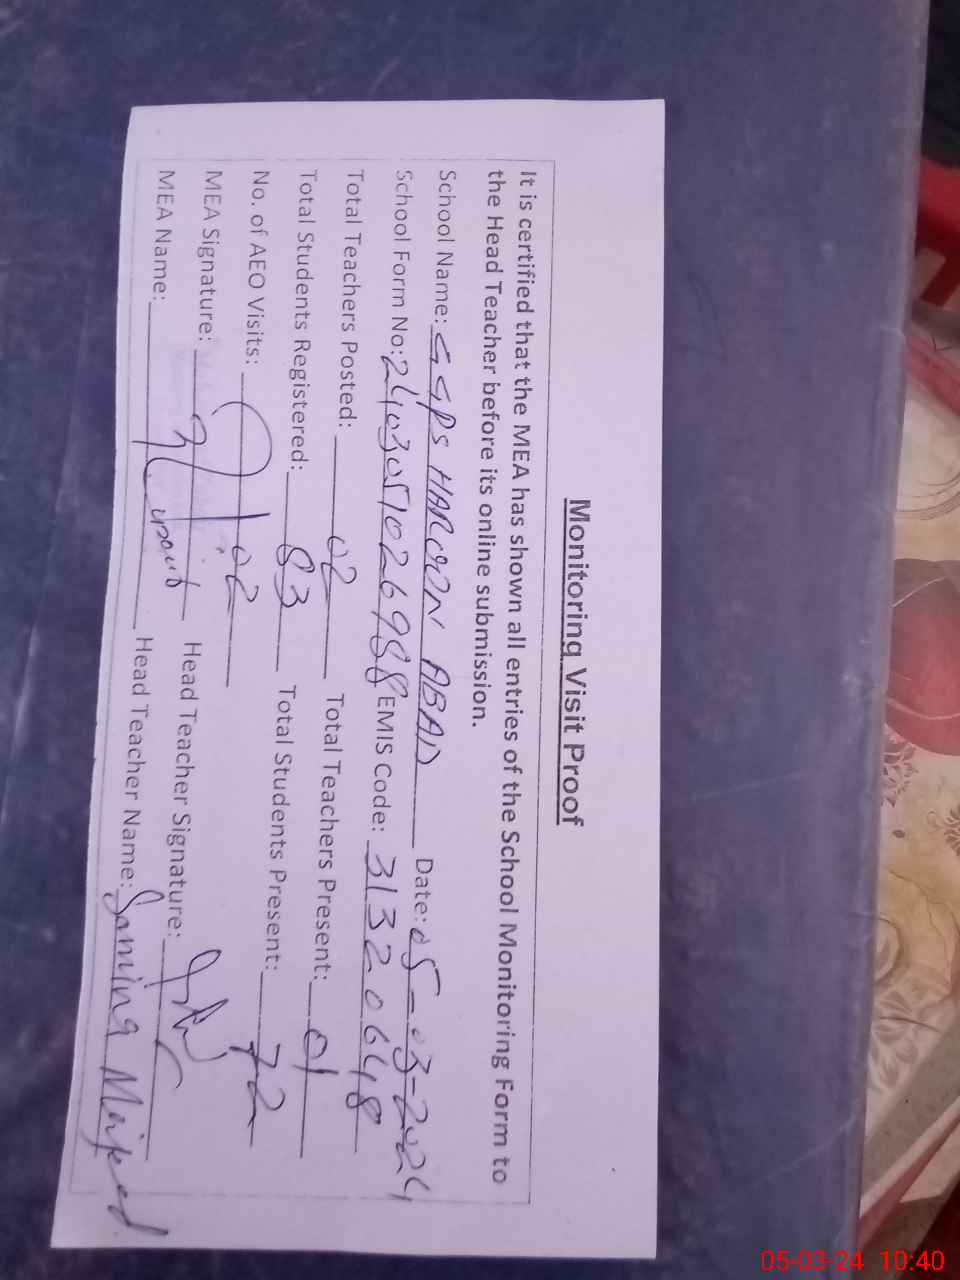 Monitoring Visit Proof
It is certified that the MEA has shown all entries of the School Monitoring Form to
the Head Teacher before its online submission.
School Name: GGPS HAROON ABAD Date: 05-03-2024
School Form No: 2403051026988 EMIS Code: 31320648
Total Teachers Posted: 02 Total Teachers Present: 01
Total Students Registered: 83 Total Students Present: 72
No. of AEO Visits: 02
MEA Signature: Head Teacher Signature:
MEA Name: Head Teacher Name: Samina
05-03-24 10:40